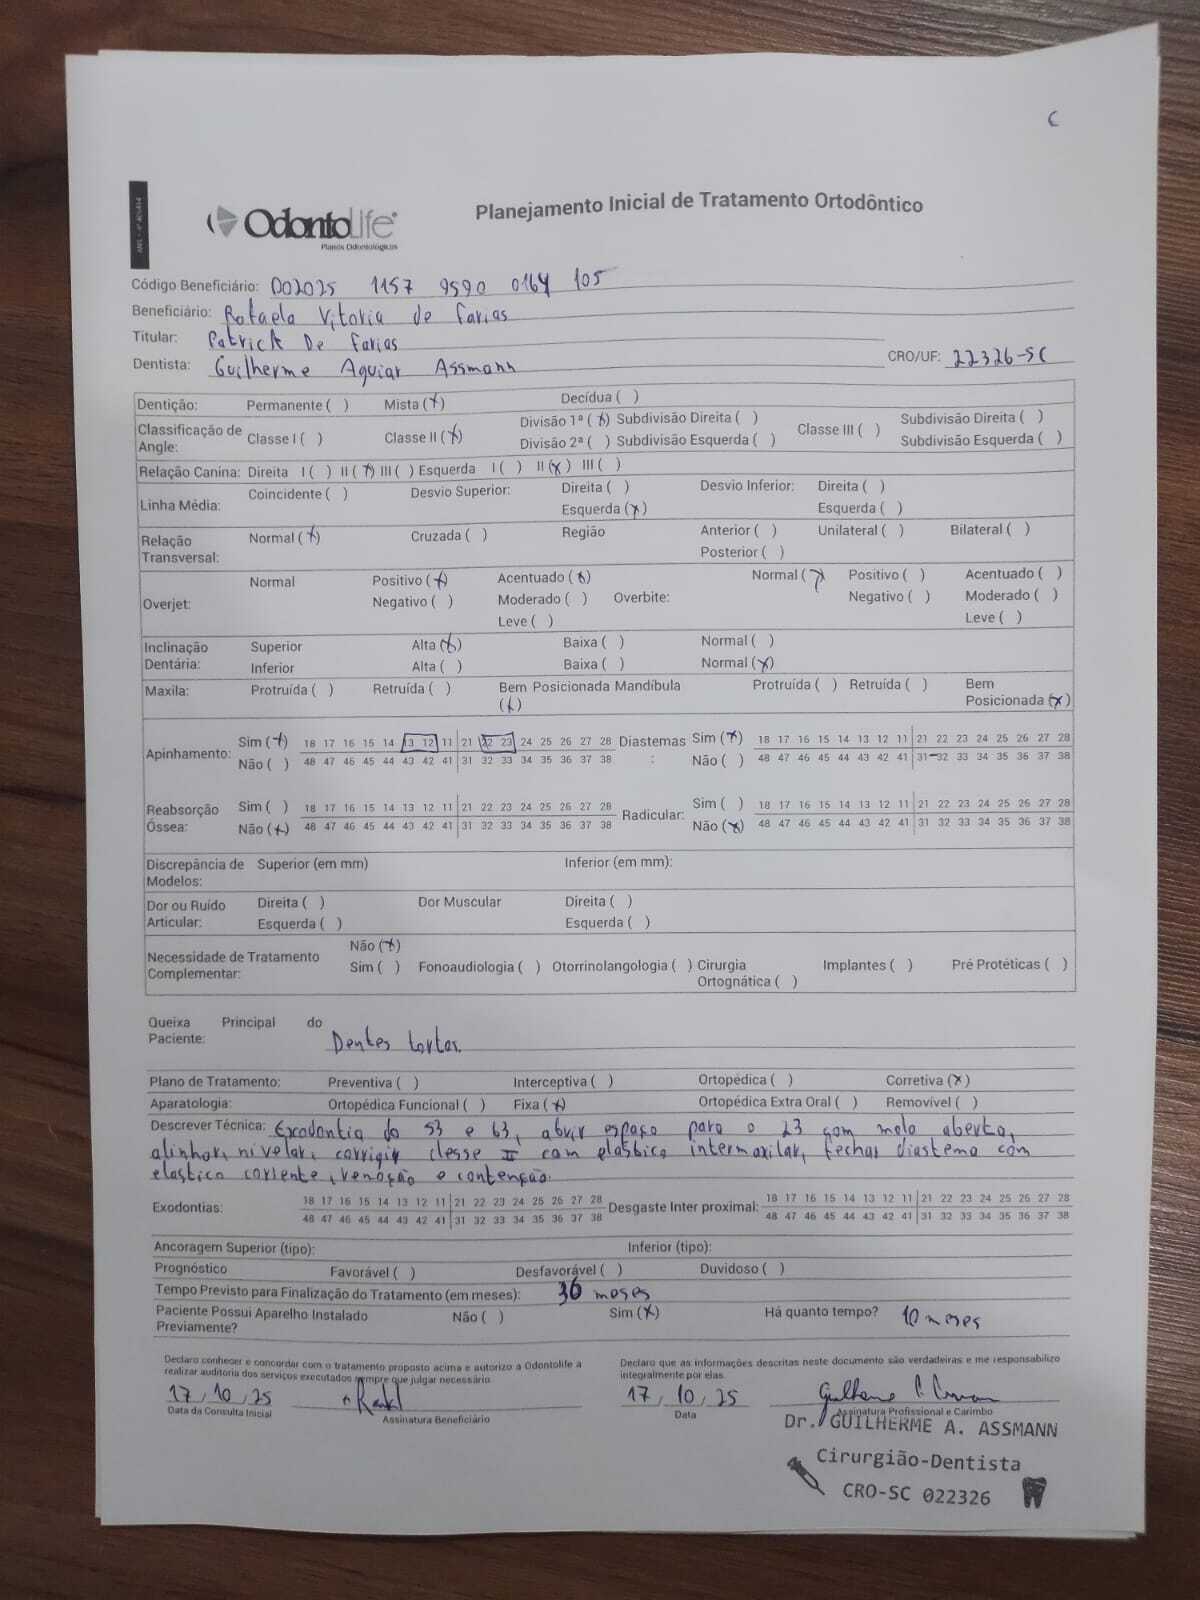 C
ANS - nº 405414
OdontoLife
Planos Odontológicos
Planejamento Inicial de Tratamento Ortodôntico
Código Beneficiário: 002025 1157 9590 0164 105
Beneficiário: Rafaela Vitoria de Farias
Titular: Patrick De Farias
Dentista: Guilherme Aguiar Assmann CRO/UF: 22326-SC
Dentição: Permanente ( ) Mista (x) Decídua ( )
Classificação de Angle: Classe I ( ) Classe II (x) Divisão 1ª (x) Subdivisão Direita ( ) Classe III ( ) Subdivisão Direita ( )
Divisão 2ª ( ) Subdivisão Esquerda ( ) Subdivisão Esquerda ( )
Relação Canina: Direita I ( ) II (x) III ( ) Esquerda I ( ) II (x) III ( )
Linha Média: Coincidente ( ) Desvio Superior: Direita ( ) Desvio Inferior: Direita ( )
Esquerda (x) Esquerda ( )
Relação Transversal: Normal (x) Cruzada ( ) Região Anterior ( ) Unilateral ( ) Bilateral ( )
Posterior ( )
Overjet: Normal Positivo (x) Acentuado (x) Overbite: Normal (x) Positivo ( ) Acentuado ( )
Negativo ( ) Moderado ( ) Negativo ( ) Moderado ( )
Leve ( ) Leve ( )
Inclinação Dentária: Superior Alta (x) Baixa ( ) Normal ( )
Inferior Alta ( ) Baixa ( ) Normal (x)
Maxila: Protruída ( ) Retruída ( ) Bem Posicionada (x) Mandíbula Protruída ( ) Retruída ( ) Bem Posicionada (x)
Apinhamento: Sim (x) 18 17 16 15 14 13 12 11 21 22 23 24 25 26 27 28 Diastemas: Sim (x) 18 17 16 15 14 13 12 11 21 22 23 24 25 26 27 28
Não ( ) 48 47 46 45 44 43 42 41 31 32 33 34 35 36 37 38 Não ( ) 48 47 46 45 44 43 42 41 31 32 33 34 35 36 37 38
Reabsorção Óssea: Sim ( ) 18 17 16 15 14 13 12 11 21 22 23 24 25 26 27 28 Radicular: Sim ( ) 18 17 16 15 14 13 12 11 21 22 23 24 25 26 27 28
Não (x) 48 47 46 45 44 43 42 41 31 32 33 34 35 36 37 38 Não (x) 48 47 46 45 44 43 42 41 31 32 33 34 35 36 37 38
Discrepância de Modelos: Superior (em mm) Inferior (em mm):
Dor ou Ruído Articular: Direita ( ) Dor Muscular Direita ( )
Esquerda ( ) Esquerda ( )
Necessidade de Tratamento Complementar: Não (x)
Sim ( ) Fonoaudiologia ( ) Otorrinolangologia ( ) Cirurgia Ortognática ( ) Implantes ( ) Pré Protéticas ( )
Queixa Principal do Paciente: Dentes tortos.
Plano de Tratamento: Preventiva ( ) Interceptiva ( ) Ortopédica ( ) Corretiva (x)
Aparatologia: Ortopédica Funcional ( ) Fixa (x) Ortopédica Extra Oral ( ) Removível ( )
Descrever Técnica: Exodontia do 53 e 63, abrir espaço para o 23 com mola aberta,
alinhar, nivelar, corrigir classe II com elastico intermaxilar, fechar diastema com
elastico corrente, remoção e contenção.
Exodontias: 18 17 16 15 14 13 12 11 21 22 23 24 25 26 27 28 Desgaste Inter proximal: 18 17 16 15 14 13 12 11 21 22 23 24 25 26 27 28
48 47 46 45 44 43 42 41 31 32 33 34 35 36 37 38 48 47 46 45 44 43 42 41 31 32 33 34 35 36 37 38
Ancoragem Superior (tipo): Inferior (tipo):
Prognóstico Favorável ( ) Desfavorável ( ) Duvidoso ( )
Tempo Previsto para Finalização do Tratamento (em meses): 36 meses
Paciente Possui Aparelho Instalado Previamente? Não ( ) Sim (x) Há quanto tempo? 10 meses
Declaro conhecer e concordar com o tratamento proposto acima e autorizo a Odontolife a
realizar auditoria dos serviços executados sempre que julgar necessário.
Declaro que as informações descritas neste documento são verdadeiras e me responsabilizo
integralmente por elas.
17, 10, 25 17, 10, 25
Data da Consulta Inicial Assinatura Beneficiário Data Assinatura Profissional e Carimbo
Dr. GUILHERME A. ASSMANN
Cirurgião-Dentista
CRO-SC 022326